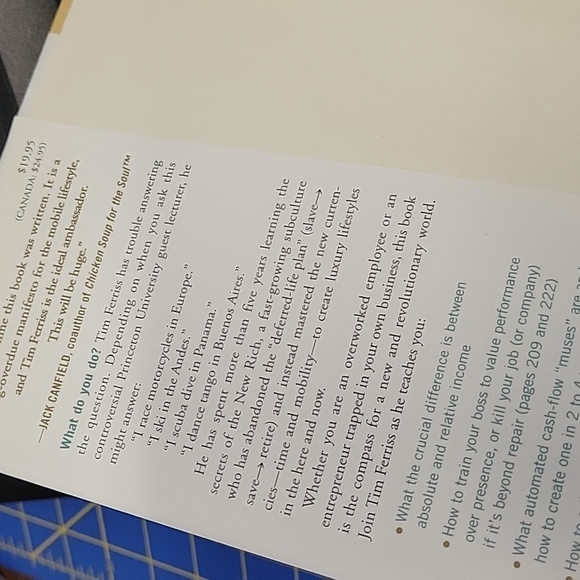 $19.95
(CANADA: $24.95)
this book was written. It is a
manifesto for the mobile lifestyle,
and Tim Ferriss is the ideal ambassador.
This will be huge."
—JACK CANFIELD, coauthor of Chicken Soup for the Soul™
What do you do? Tim Ferriss has trouble answering
the question. Depending on when you ask this
controversial Princeton University guest lecturer, he
might answer:
"I race motorcycles in Europe."
"I ski in the Andes."
"I scuba dive in Panama."
"I dance tango in Buenos Aires."
He has spent more than five years learning the
secrets of the New Rich, a fast-growing subculture
who has abandoned the "deferred-life plan" (slave→
save→ retire) and instead mastered the new curren-
cies—time and mobility—to create luxury lifestyles
in the here and now.
Whether you are an overworked employee or an
entrepreneur trapped in your own business, this book
is the compass for a new and revolutionary world.
Join Tim Ferriss as he teaches you:
• What the crucial difference is between
absolute and relative income
• How to train your boss to value performance
over presence, or kill your job (or company)
if it's beyond repair (pages 209 and 222)
• What automated cash-flow "muses" are
how to create one in 2 to
How